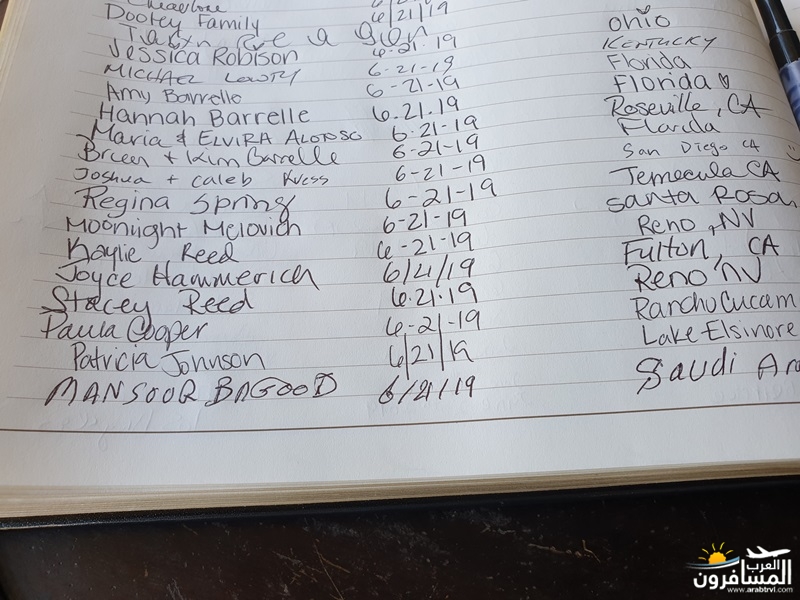 Dooley Family 6/21/19
Jessica Robison 6-21-19 Ohio
MICHAEL LOWRY 6-21-19 KENTUCKY
Amy Barrelle 6-21-19 Florida
Hannah Barrelle 6.21.19 Florida
Maria & ELVIRA ALONSO 6-21-19 Roseville, CA
Breen + Kim Barrelle 6-21-19 Florida
Joshua + Caleb Kress 6-21-19 San Diego CA
Regina Spring 6-21-19 Temecula CA
Moonlight Melovich 6-21-19 Santa Rosa
Kaylie Reed 6-21-19 Reno, NV
Joyce Hammerich 6/21/19 Fulton, CA
Stacey Reed 6.21.19 Reno NV
Paula Cooper 6-21-19 Rancho Cucam
Patricia Johnson 6|21|19 Lake Elsinore
MANSOOR BAGOOD 6/21/19 Saudi Ara
العرب
المسافرون
www.arabtrvl.com